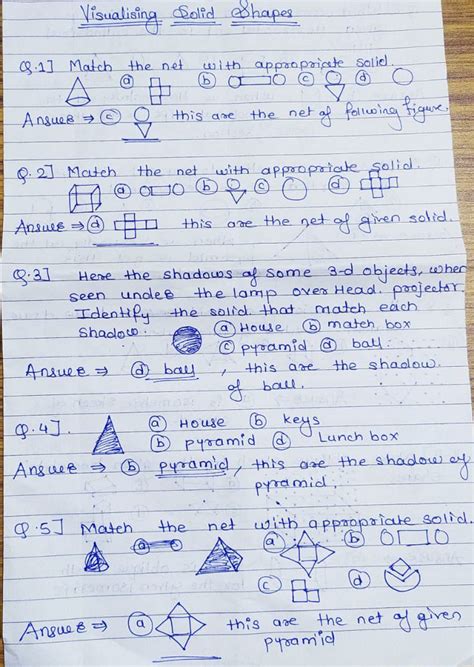 Visualising Solid Shapes
Q.1] Match the net with appropriate solid.
ⓐ ⓑ ⓒ ⓓ
Answer ⇒ ⓒ this are the net of follwing figure.
Q.2] Match the net with appropriate solid.
ⓐ ⓑ ⓒ ⓓ
Answer ⇒ ⓓ this are the net of given solid.
Q.3] Here the shadows of some 3-d objects, when
seen under the lamp over Head projector.
Identify the solid that match each
Shadow. ⓐ House ⓑ match box
ⓒ pyramid ⓓ ball.
Answer ⇒ ⓓ ball, this are the shadow
of ball.
Q.4]. ⓐ House ⓑ keys
ⓑ pyramid ⓓ Lunch box
Answer ⇒ ⓑ pyramid, this are the shadow of
pyramid.
Q.5] Match the net with appropriate solid.
ⓐ ⓑ
ⓒ ⓓ
Answer ⇒ ⓐ this are the net of given
pyramid